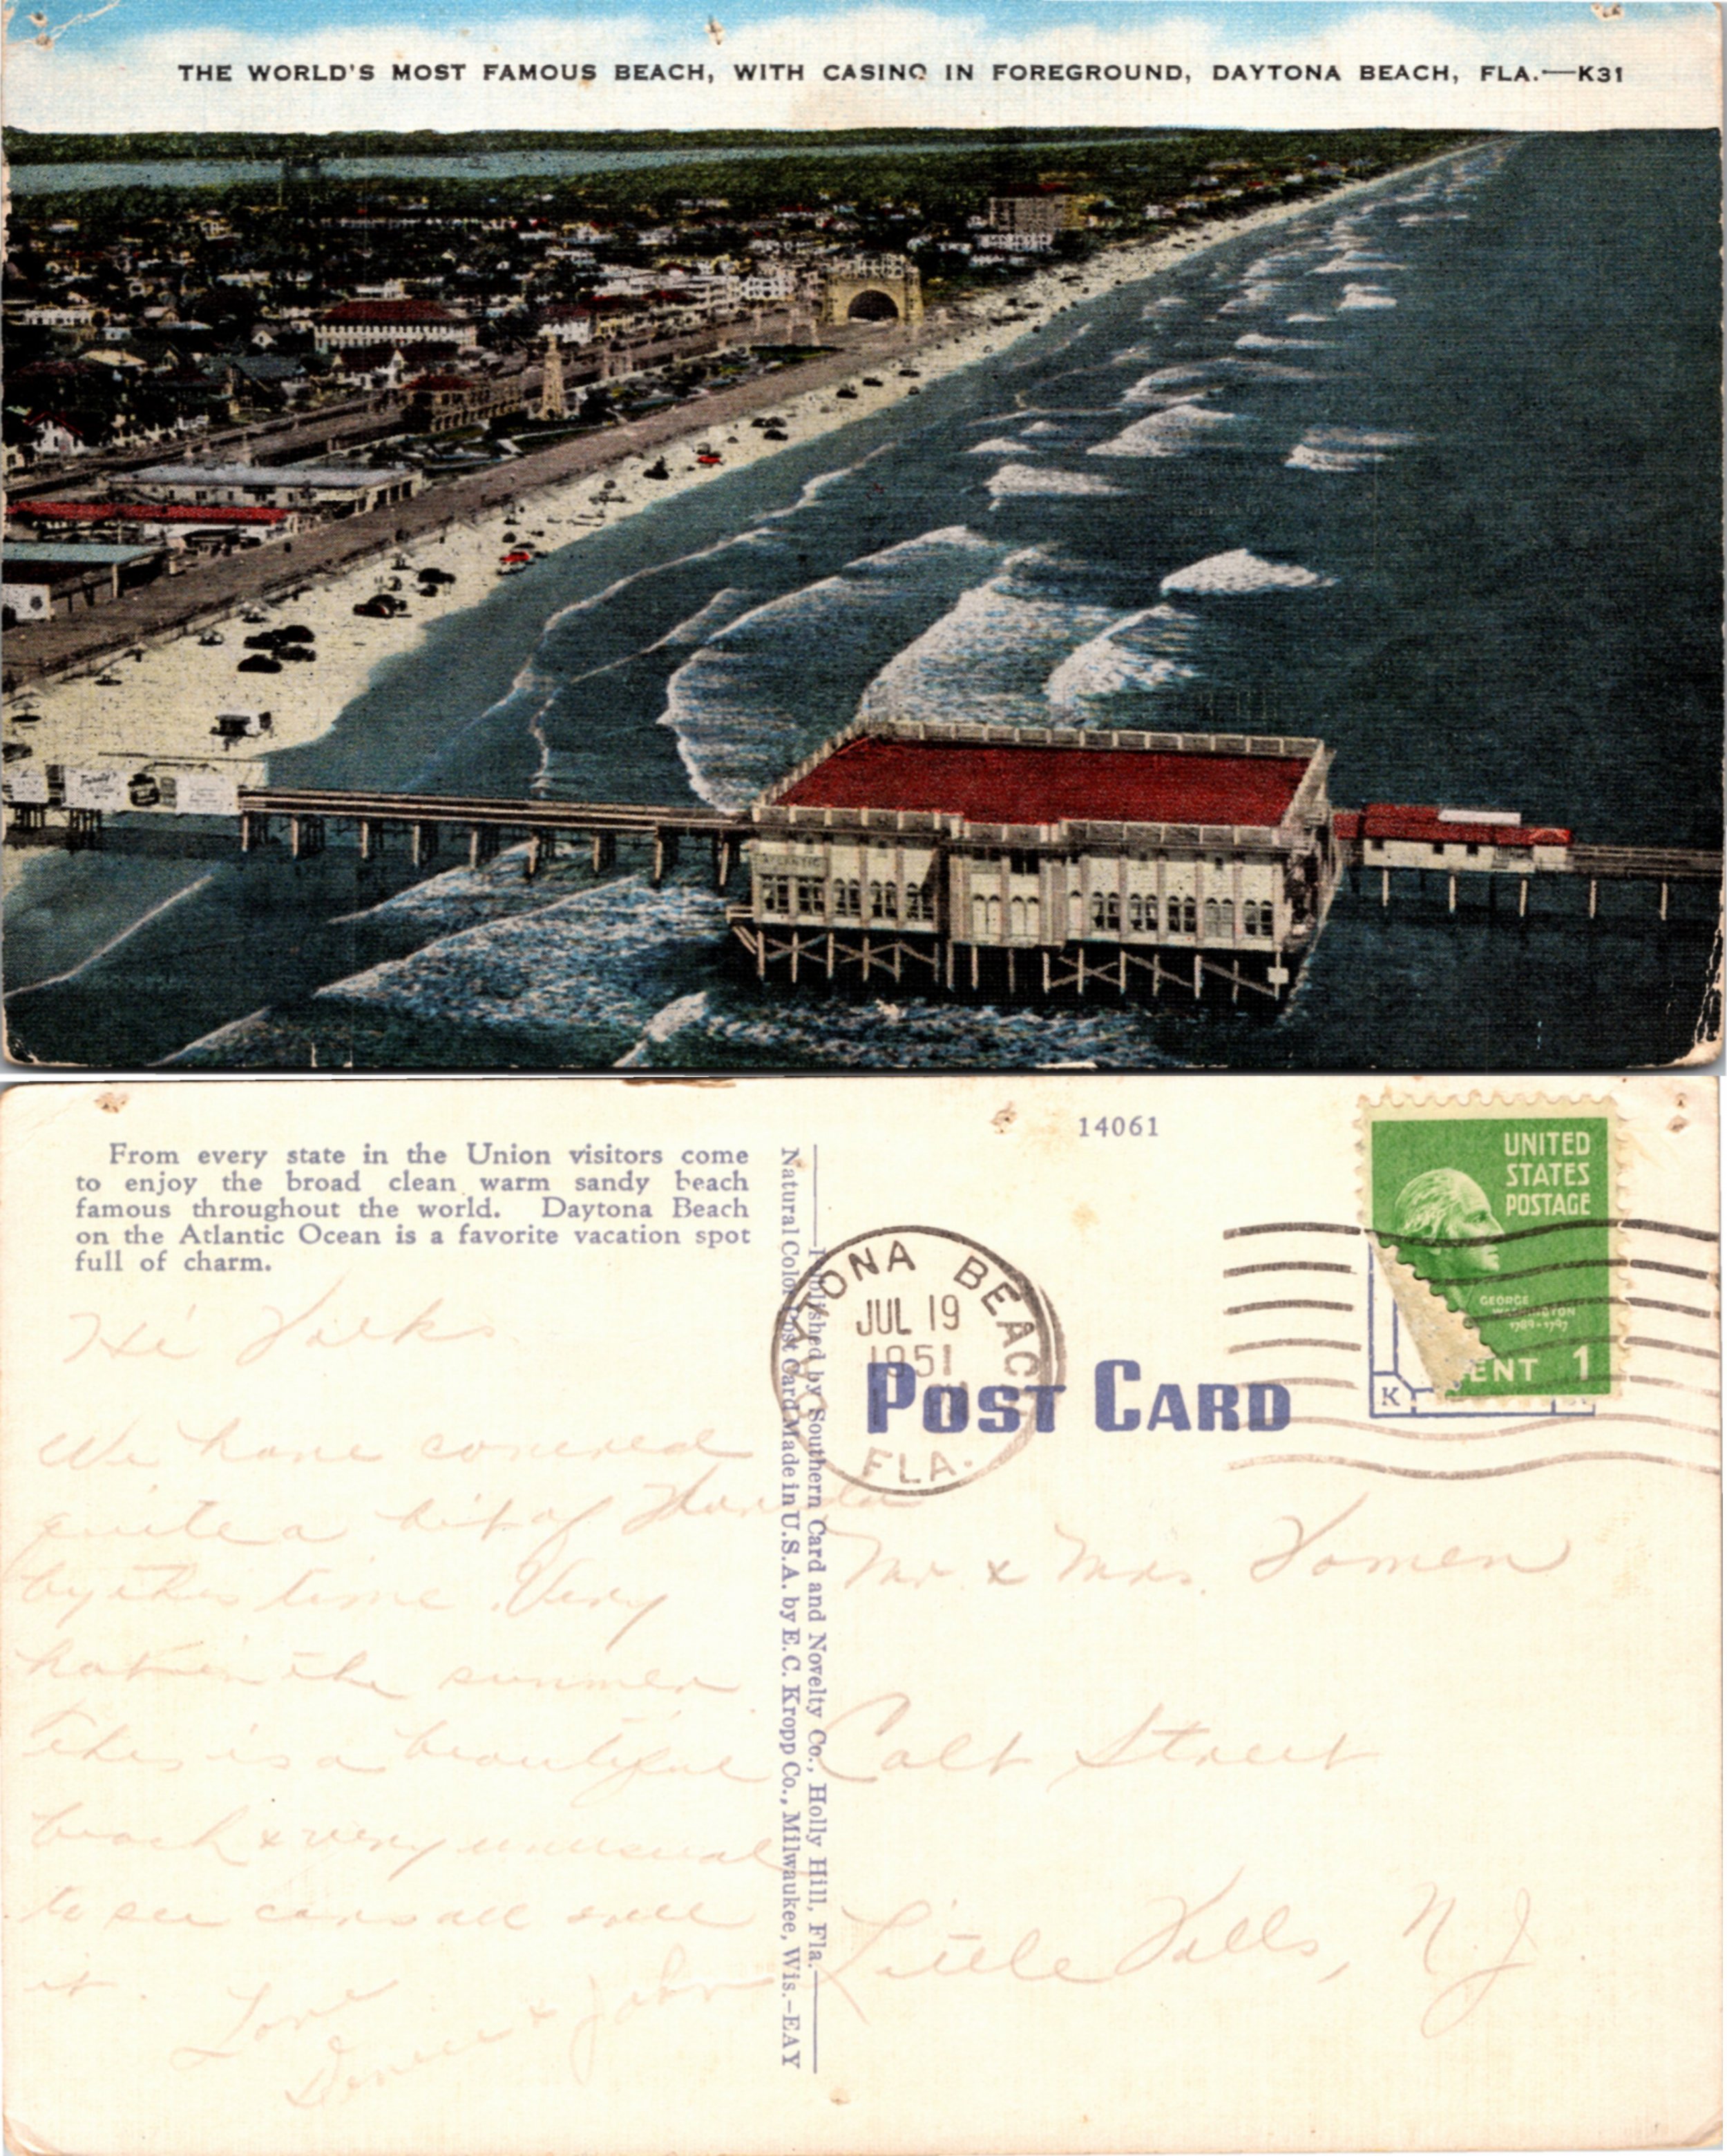 THE WORLD'S MOST FAMOUS BEACH, WITH CASINO IN FOREGROUND, DAYTONA BEACH, FLA.—K31
ATLANTIC
From every state in the Union visitors come
to enjoy the broad clean warm sandy beach
famous throughout the world. Daytona Beach
on the Atlantic Ocean is a favorite vacation spot
full of charm.
Hi Folks
We have covered
quite a bit of Florida
by this time. Very
hot in the summer.
This is a beautiful
beach & very unusual
to see cars all over
it.
Love
& John
Natural Color Post Card Made in U.S.A. by E. C. Kropp Co., Milwaukee, Wis.-EAY
Published by Southern Card and Novelty Co., Holly Hill, Fla.
14061
UNITED
STATES
POSTAGE
GEORGE
WASHINGTON
1789-1797
CENT 1
K
DAYTONA BEACH
JUL 19
1951
FLA.
POST CARD
Mr & Mrs. Vomen
Calt Street
Little Falls, N.J.